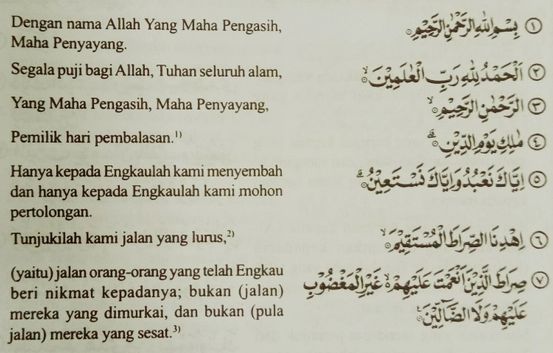 Dengan nama Allah Yang Maha Pengasih,
Maha Penyayang.
بِسْمِ اللّٰهِ الرَّحْمٰنِ الرَّحِيْمِ ۝ ①
Segala puji bagi Allah, Tuhan seluruh alam,
اَلْحَمْدُ لِلّٰهِ رَبِّ الْعٰلَمِيْنَۙ ۝ ②
Yang Maha Pengasih, Maha Penyayang,
الرَّحْمٰنِ الرَّحِيْمِۙ ۝ ③
Pemilik hari pembalasan.¹⁾
مٰلِكِ يَوْمِ الدِّيْنِۗ ۝ ④
Hanya kepada Engkaulah kami menyembah
dan hanya kepada Engkaulah kami mohon
pertolongan.
اِيَّاكَ نَعْبُدُ وَاِيَّاكَ نَسْتَعِيْنُۗ ۝ ⑤
Tunjukilah kami jalan yang lurus,²⁾
اِهْدِنَا الصِّرَاطَ الْمُسْتَقِيْمَۙ ۝ ⑥
(yaitu) jalan orang-orang yang telah Engkau
beri nikmat kepadanya; bukan (jalan)
mereka yang dimurkai, dan bukan (pula
jalan) mereka yang sesat.³⁾
صِرَاطَ الَّذِيْنَ اَنْعَمْتَ عَلَيْهِمْ ەۙ غَيْرِ الْمَغْضُوْبِ ⑦
عَلَيْهِمْ وَلَا الضَّاۤلِّيْنَ ۝